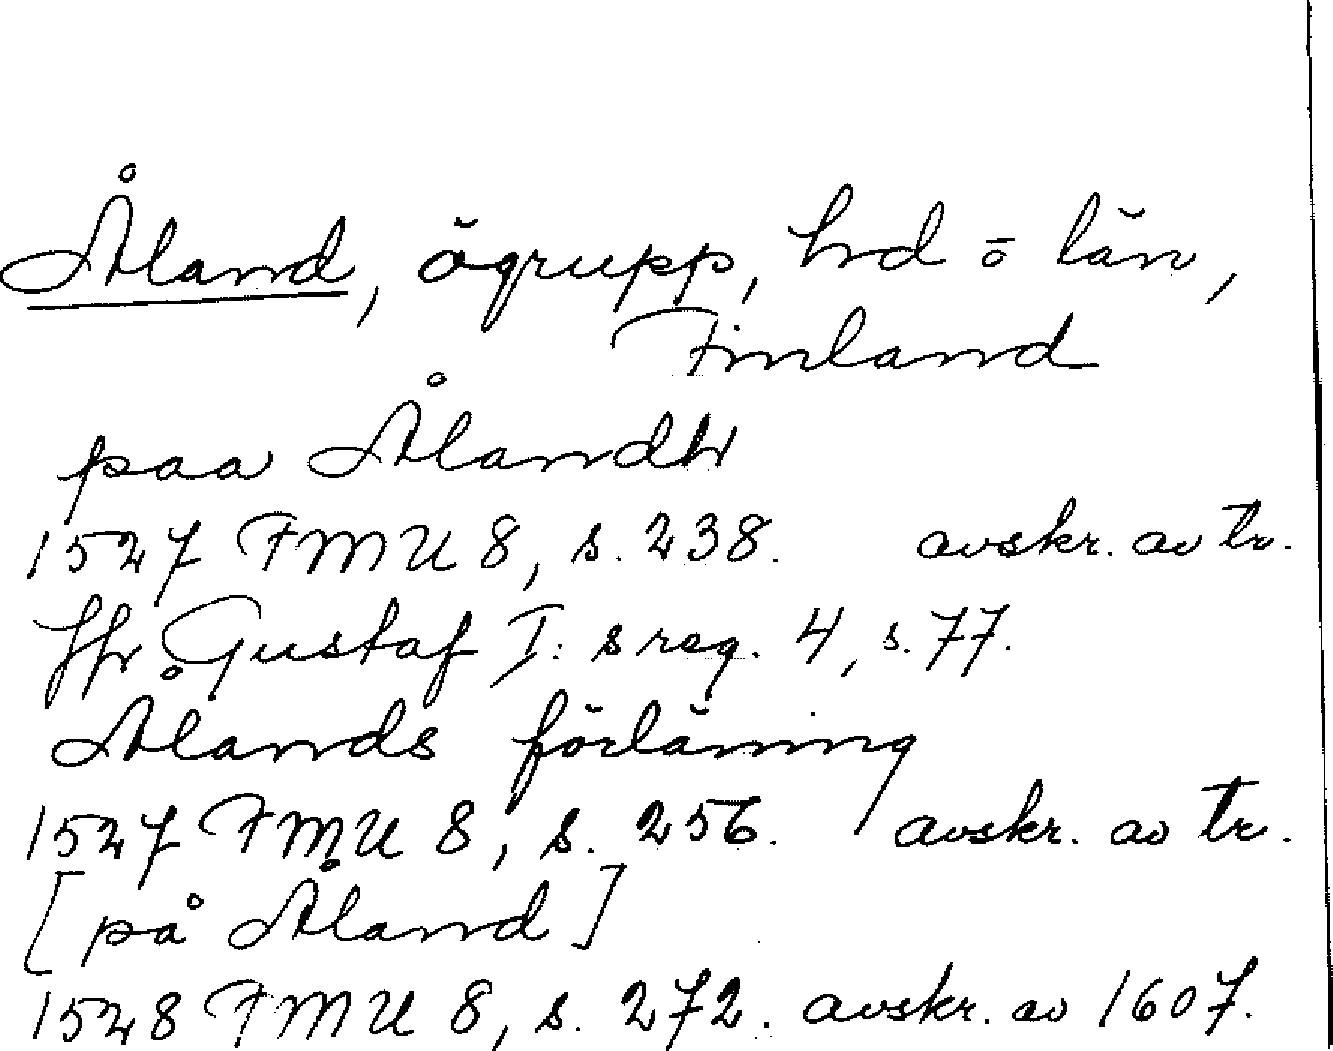 Åland, ögrupp, hd o län,
Finland
paa Ålandh
1527 FMU 8, s. 238. avskr. av tr.
Jfr Gustaf I:s reg. 4, s. 77.
Ålands förläning
1527 FMU 8, s. 256. avskr. av tr.
[på Åland]
1528 FMU 8, s. 272. avskr. av 1607.